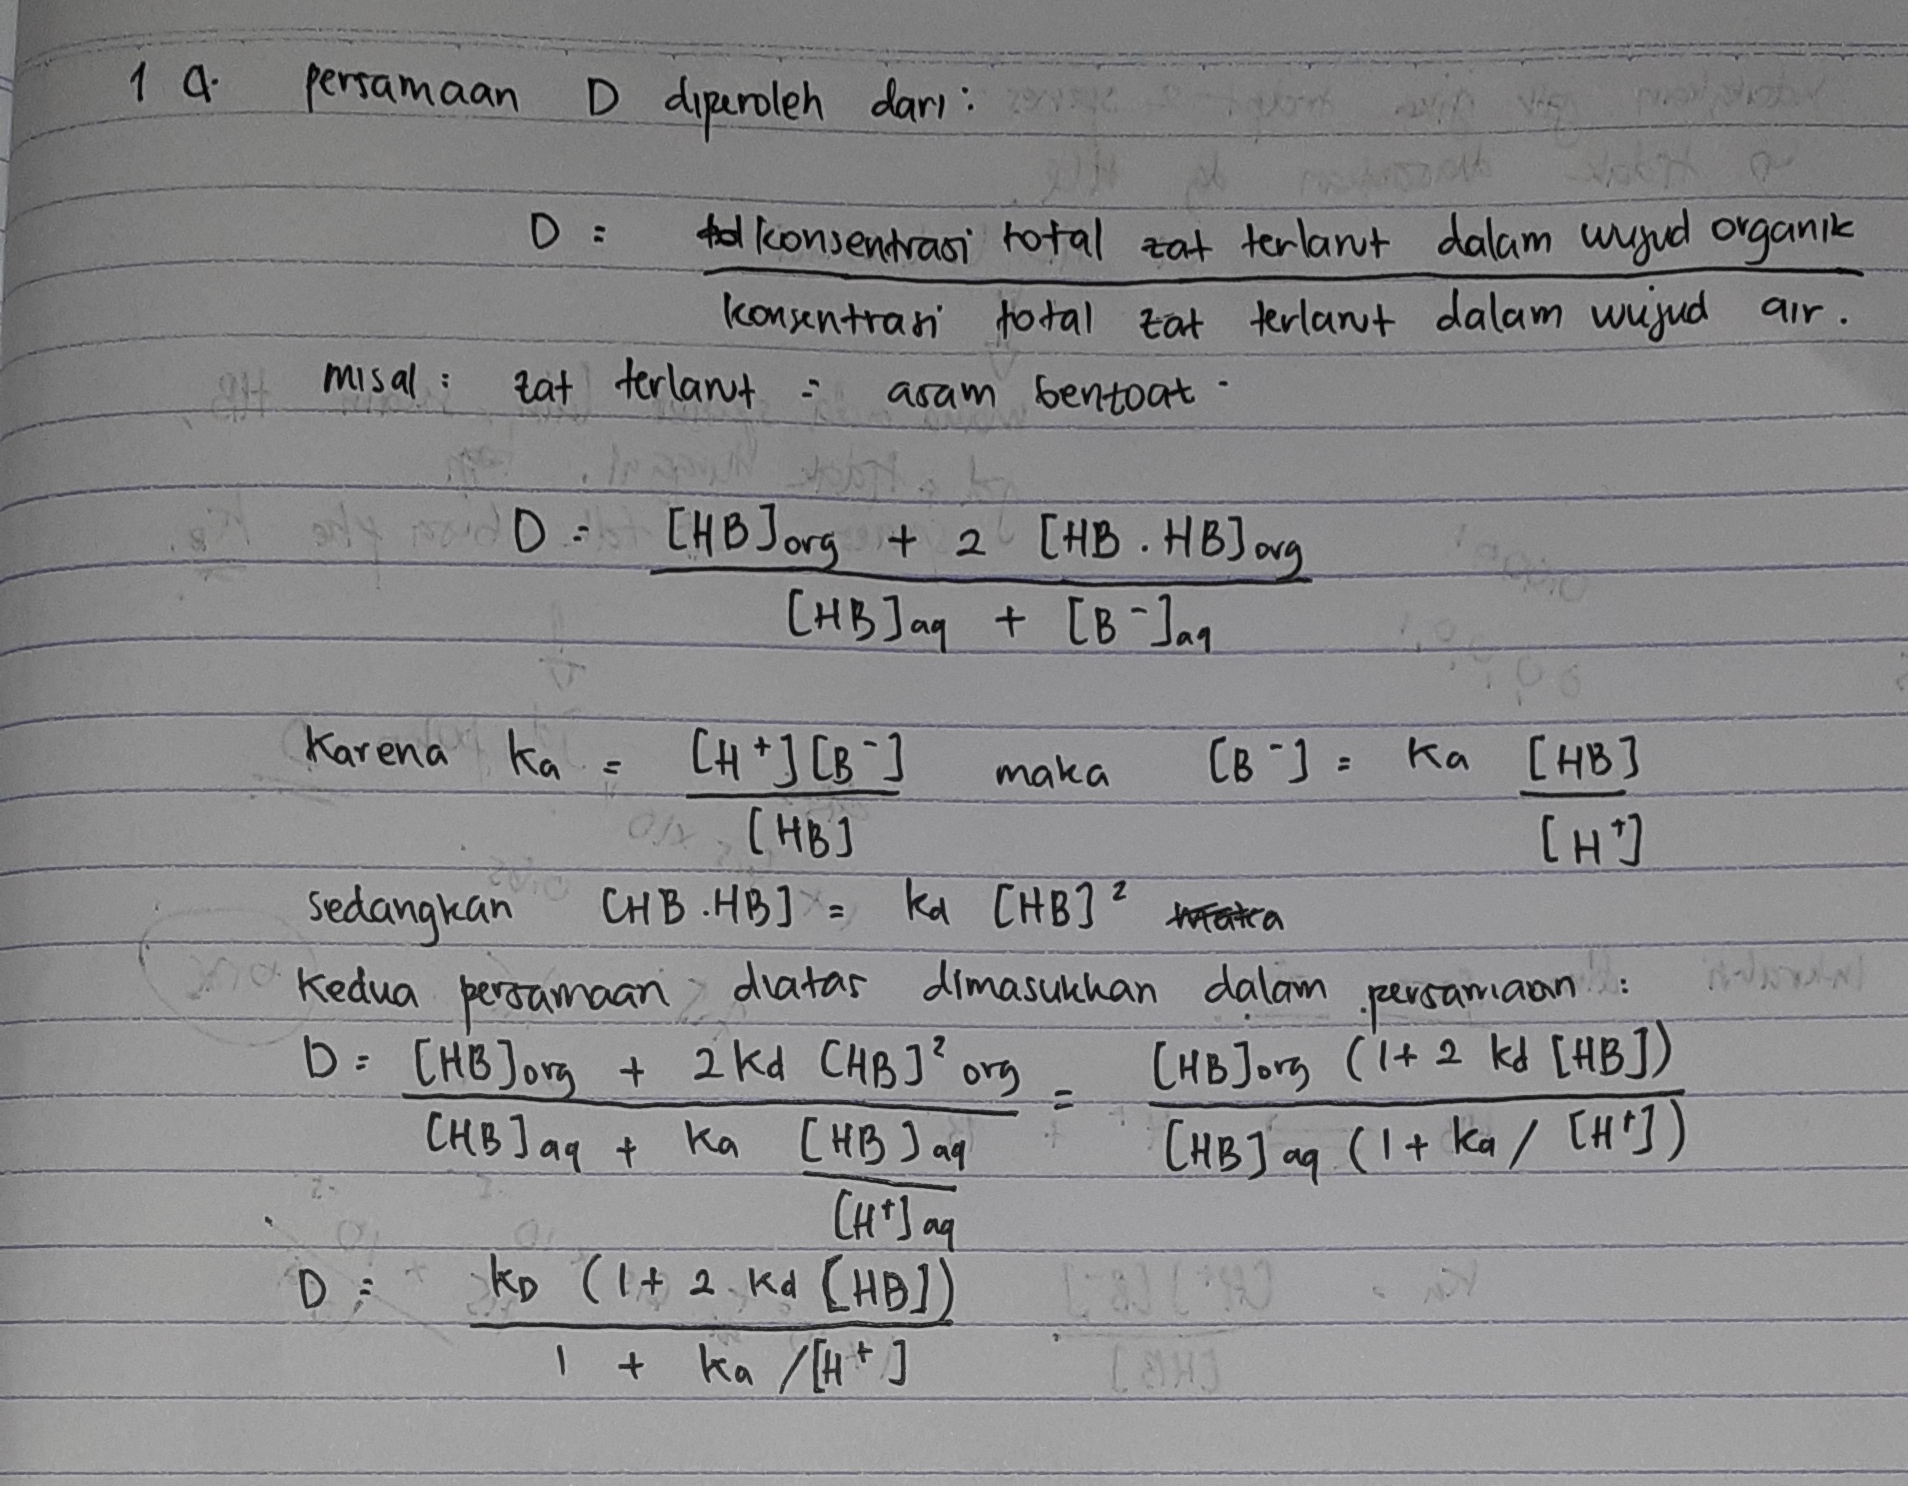 1 a. persamaan D diperoleh dari :
D = konsentrasi total zat terlarut dalam wujud organik
konsentrasi total zat terlarut dalam wujud air.
misal : zat terlarut = asam benzoat.
D = [HB]org + 2 [HB . HB]org
[HB]aq + [B⁻]aq
Karena Ka = [H⁺][B⁻] maka [B⁻] = Ka [HB]
[HB] [H⁺]
sedangkan [HB.HB] = Kd [HB]²
Kedua persamaan diatas dimasukkan dalam persamaan :
D = [HB]org + 2 Kd [HB]² org = [HB]org (1 + 2 Kd [HB])
[HB]aq + Ka [HB]aq [HB]aq (1 + Ka / [H⁺])
[H⁺]aq
D = KD (1 + 2 Kd [HB])
1 + Ka /[H⁺]